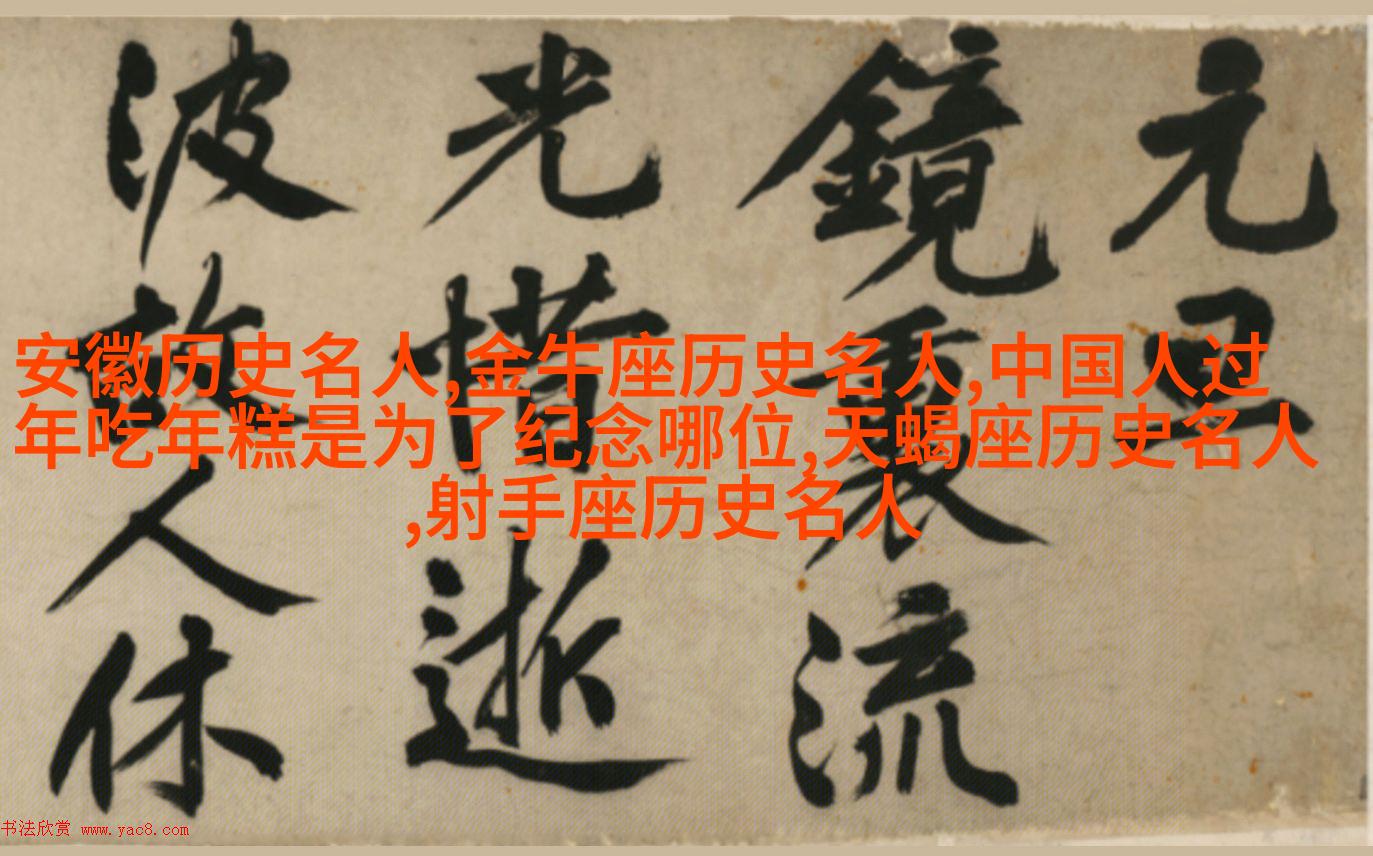 元旦
鏡裏流
光惜逝
波故人休
安徽历史名人,金牛座历史名人,中国人过
年吃年糕是为了纪念哪位,天蝎座历史名人
,射手座历史名人
书法欣赏 www.yac8.com